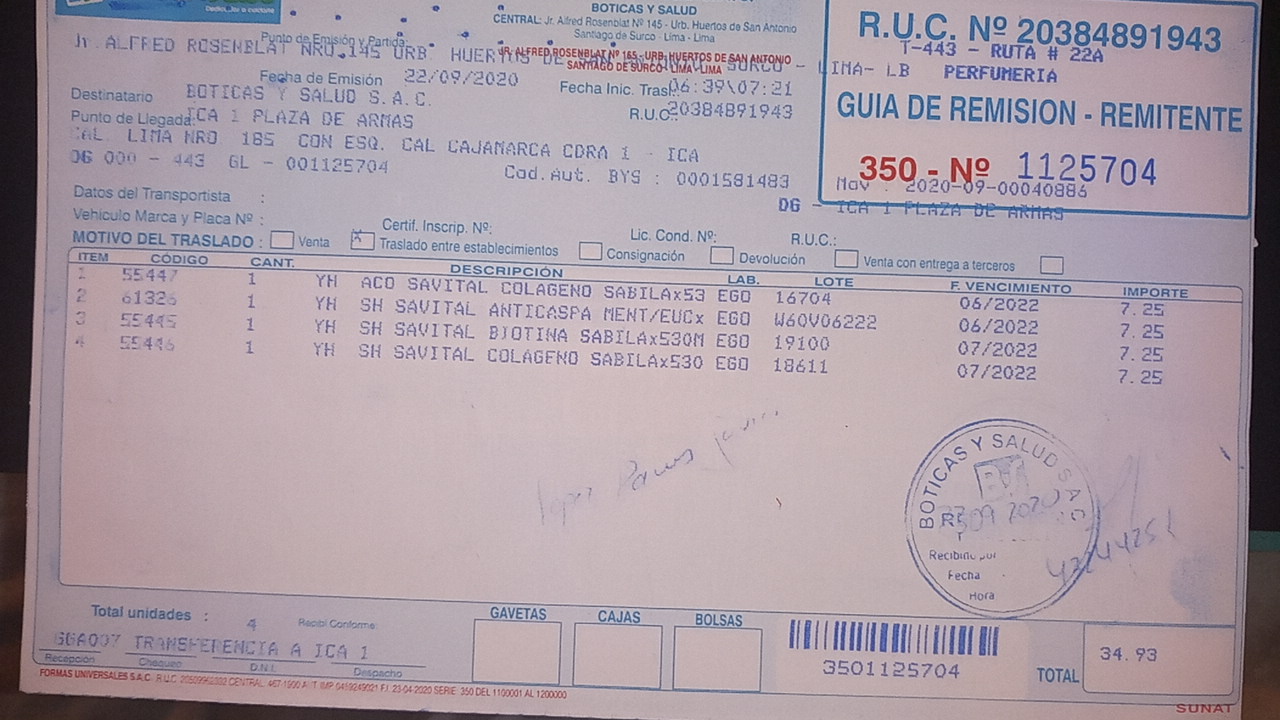 BOTICAS Y SALUD
CENTRAL: Jr. Alfred Rosenblat Nº 145 - Urb. Huertos de San Antonio
Santiago de Surco - Lima - Lima
R.U.C. Nº 20384891943
T-443 - RUTA # 22A
PERFUMERIA
GUIA DE REMISION - REMITENTE
350 - Nº 1125704
Mov : 2020-09-00040886
DG - ICA 1 PLAZA DE ARMAS
Punto de Emisión y Partida:
Jr. ALFRED ROSENBLAT NRO. 145 URB. HUERTOS DE SAN ANTONIO SURCO - LIMA- LB
JR. ALFRED ROSENBLAT Nº 165 - URB. HUERTOS DE SAN ANTONIO
SANTIAGO DE SURCO - LIMA - LIMA
Fecha de Emisión 22/09/2020 Fecha Inic. Trasl. 06:39\07:21
Destinatario BOTICAS Y SALUD S.A.C. R.U.C. 20384891943
Punto de Llegada: ICA 1 PLAZA DE ARMAS
CAL. LIMA NRO 185 CON ESQ. CAL CAJAMARCA CDRA 1 - ICA
DG 000 - 443 GL - 001125704 Cod.Aut. BYS : 0001581483
Datos del Transportista :
Vehículo Marca y Placa Nº : Certif. Inscrip. Nº: Lic. Cond. Nº: R.U.C.:
MOTIVO DEL TRASLADO : Venta X Traslado entre establecimientos Consignación Devolución Venta con entrega a terceros
ITEM CÓDIGO CANT. DESCRIPCIÓN LAB. LOTE F. VENCIMIENTO IMPORTE
1 55447 1 YH ACO SAVITAL COLAGENO SABILAx53 EGO 16704 06/2022 7.25
2 61326 1 YH SH SAVITAL ANTICASPA MENT/EUCx EGO W60V06222 06/2022 7.25
3 55445 1 YH SH SAVITAL BIOTINA SABILAx530M EGO 19100 07/2022 7.25
4 55446 1 YH SH SAVITAL COLAGENO SABILAx530 EGO 18611 07/2022 7.25
BOTICAS Y SALUD S.A.C.
Recibido por
Fecha
Hora
Total unidades : 4 Recibí Conforme:
GGA007 TRANSFERENCIA A ICA 1
Recepción Chequeo D.N.I. Despacho
GAVETAS CAJAS BOLSAS
3501125704
TOTAL 34.93
FORMAS UNIVERSALES S.A.C.
SERIE: 350 DEL 1100001 AL 1200000
SUNAT